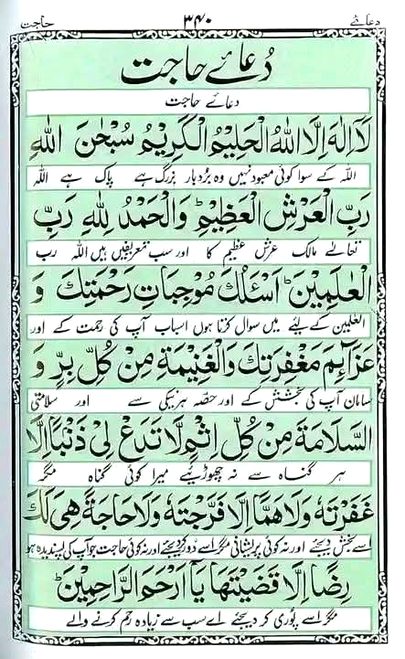 دعائے ۳۴۰ حاجت
دُعائے حاجت
دعائے حاجت
لَآ اِلٰهَ اِلَّا اللّٰهُ الْحَلِيْمُ الْكَرِيْمُ سُبْحٰنَ اللّٰهِ
اللہ کے سوا کوئی معبود نہیں وہ بردبار بزرگ ہے پاک ہے اللہ
رَبِّ الْعَرْشِ الْعَظِيْمِ ؕ وَالْحَمْدُ لِلّٰهِ رَبِّ
تعالے مالک عرش عظیم کا اور سب تعریفیں ہیں اللہ رب
الْعٰلَمِيْنَ ؕ اَسْئَلُكَ مُوْجِبَاتِ رَحْمَتِكَ وَ
العلمین کے لئے میں سوال کرتا ہوں اسباب آپ کی رحمت کے اور
عَزَآئِمَ مَغْفِرَتِكَ وَالْغَنِيْمَةَ مِنْ كُلِّ بِرٍّ وَّ
سامان آپ کی بخشش کے اور حصہ ہر نیکی سے اور سلامتی
السَّلَامَةَ مِنْ كُلِّ اِثْمٍ لَّا تَدَعْ لِيْ ذَنْۢبًا اِلَّا
ہر گناہ سے نہ چھوڑیئے میرا کوئی گناہ مگر
غَفَرْتَهٗ وَلَا هَمًّا اِلَّا فَرَّجْتَهٗ وَلَا حَاجَةً هِيَ لَكَ
اسے بخش دیجئے اور نہ کوئی پریشانی مگر اسے دور کر دیجئے اور نہ کوئی حاجت جو آپ کی پسندیدہ ہو
رِضًا اِلَّا قَضَيْتَهَا يَآ اَرْحَمَ الرَّاحِمِيْنَ ؕ
مگر اسے پوری کر دیجئے اے سب سے زیادہ رحم کرنے والے